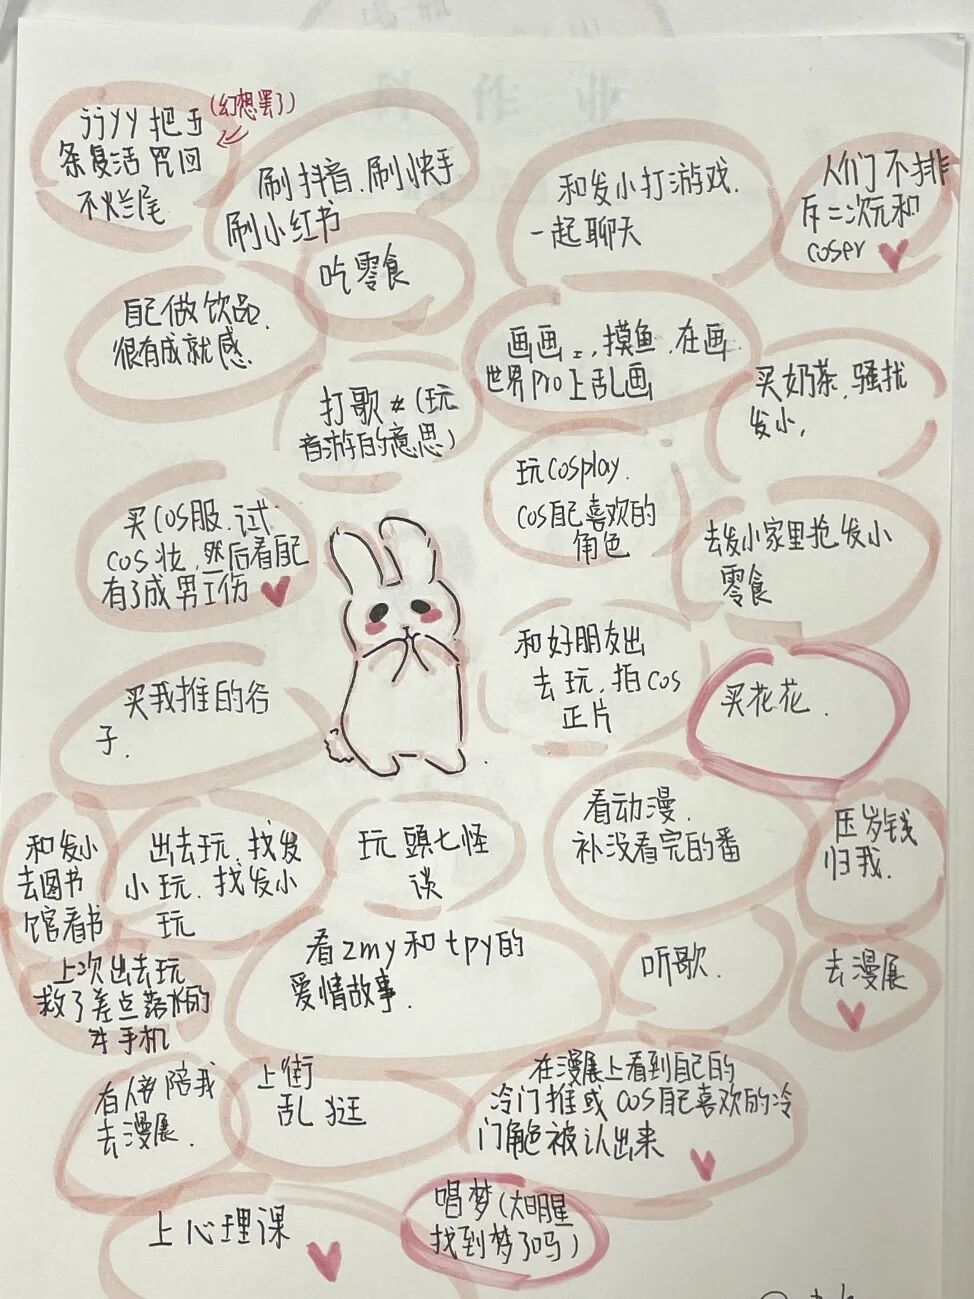 (幻想罢了)
芥yy把五
条复活 咒回
不烂尾
刷抖音.刷快手
刷小红书
和发小打游戏.
一起聊天
人们不排
斥二次元和
coser
吃零食
自己做饮品.
很有成就感.
画画 摸鱼.在画
世界Pro上乱画
买奶茶.骚扰
发小,
打歌 (玩
音游的意思)
玩cosplay.
cos自己喜欢的
角色
买cos服.试
cos妆.然后看自己
有了成男工伤
去发小家里抢发小
零食
和好朋友出
去玩.拍cos
正片
买花花.
买我推的谷
子.
看动漫.
补没看完的番
压岁钱
归我.
和发小
去图书
馆看书
出去玩.找发
小玩.找发小
玩
玩頭七怪
谈
看zmy和tpy的
爱情故事.
听歌.
去漫展
上次出去玩
救了差点落水的
手机
有人陪我
去漫展.
上街
乱逛
在漫展上看到自己的
冷门推或cos自己喜欢的冷
门角色被认出来
上心理课
唱梦(大明星
找到梦了吗)